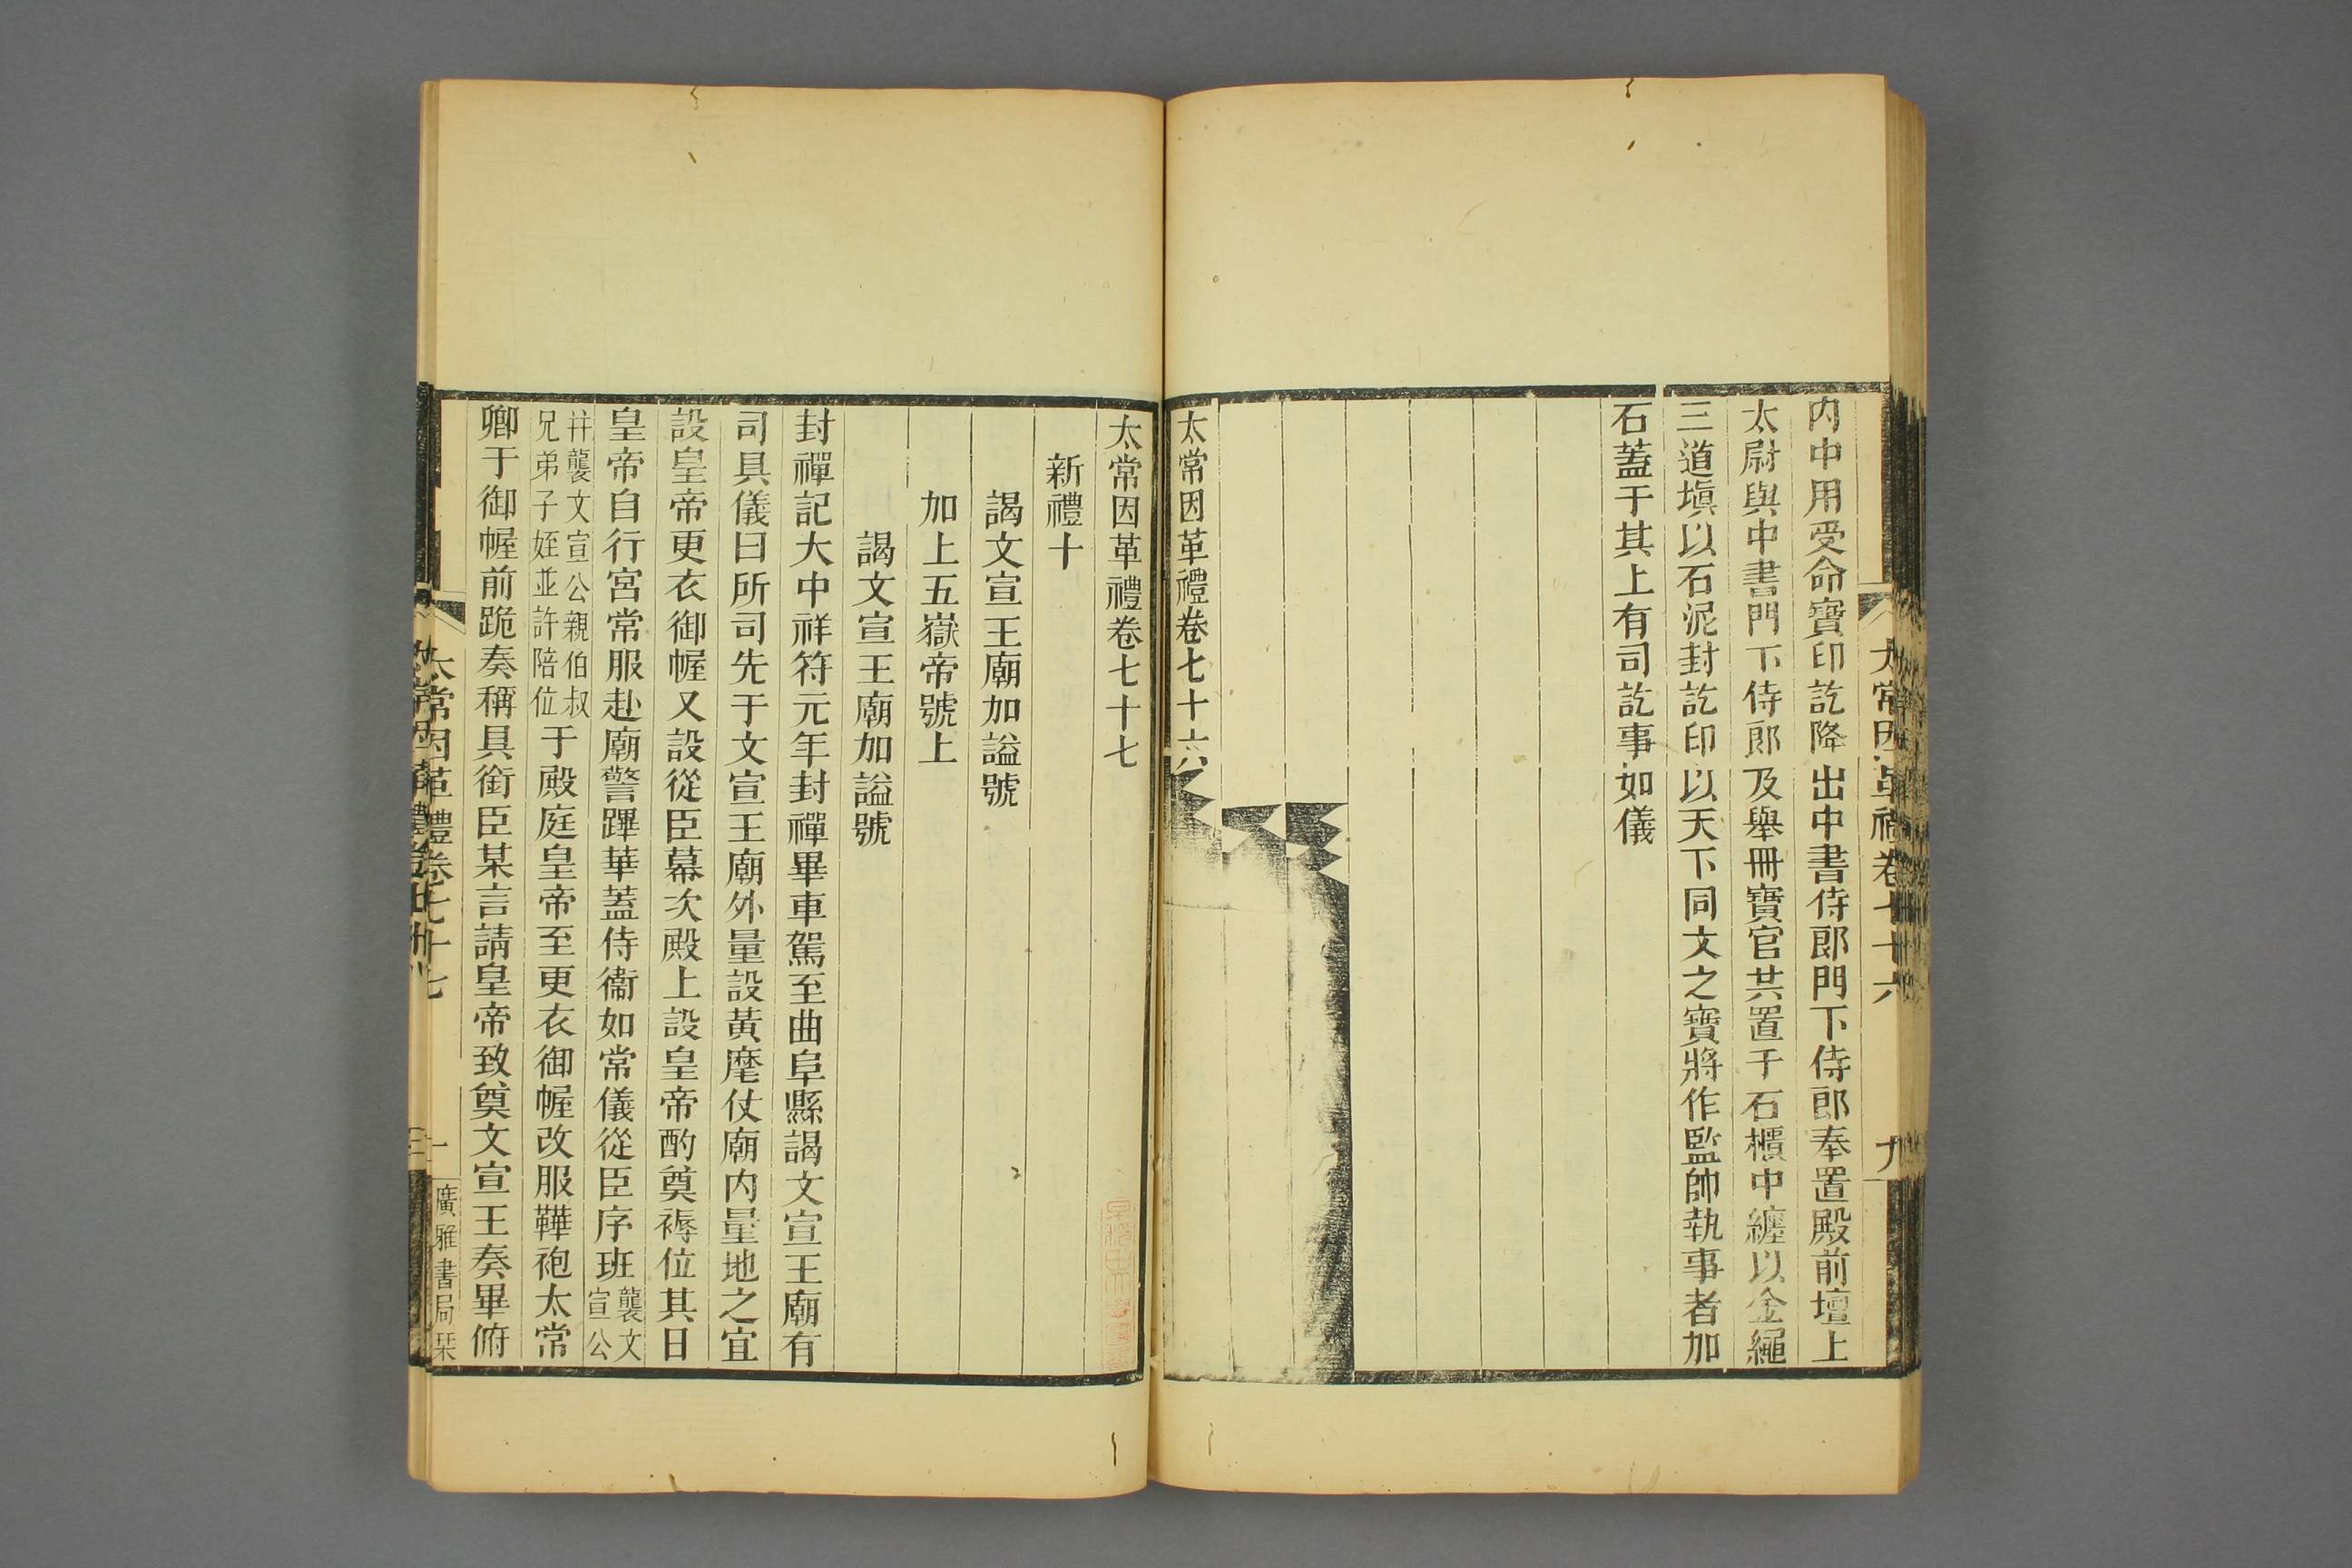 内中用受命寶印訖降出中書侍郎門下侍郎奉置殿前壇上
太尉與中書門下侍郎及舉冊寶官共置于石櫃中纏以金繩
三道塡以石泥封訖印以天下同文之寶將作監帥執事者加
石蓋于其上有司訖事如儀
太常因革禮卷七十六
太常因革禮卷七十六
九
太常因革禮卷七十七
新禮十
謁文宣王廟加謚號
加上五嶽帝號上
謁文宣王廟加謚號
封禪記大中祥符元年封禪畢車駕至曲阜縣謁文宣王廟有
司具儀曰所司先于文宣王廟外量設黃麾仗廟内量地之宜
設皇帝更衣御幄又設從臣幕次殿上設皇帝酌奠褥位其日
皇帝自行宮常服赴廟警蹕華蓋侍衞如常儀從臣序班襲文宣公
幷襲文宣公親伯叔兄弟子姪並許陪位于殿庭皇帝至更衣御幄改服鞾袍太常
卿于御幄前跪奏稱具銜臣某言請皇帝致奠文宣王奏畢俯
太常因革禮卷七十七
一
廣雅書局栞